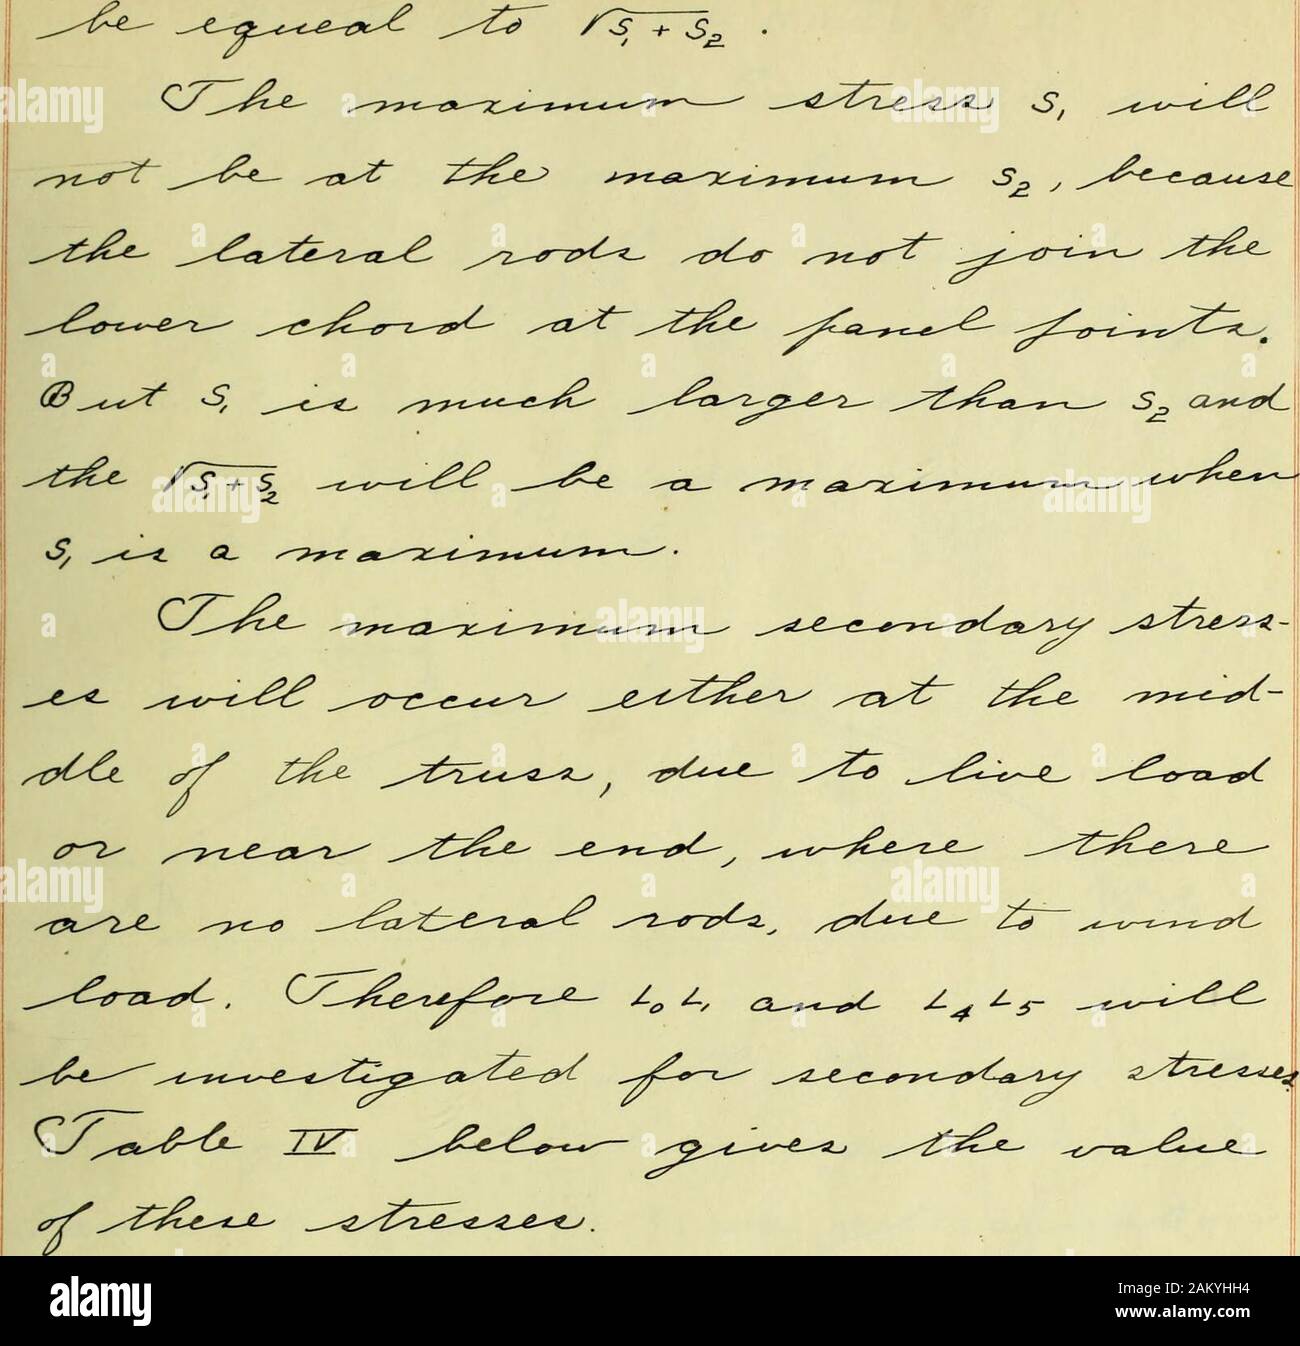 be equal to √S₁ + S₂ .
The maximum stress S₁ will
not be at the maximum S₂, because
the lateral rods do not join the
lower chord at the panel joints.
But S₁ is much larger than S₂ and
the √S₁ + S₂ will be a maximum when
S₁ is a maximum.
The maximum secondary stress-
es will occur either at the mid-
dle of the truss, due to live load
or near the end, where there
are no lateral rods, due to wind
load. Therefore L₀L₁ and L₄L₅ will
be investigated for secondary stresses.
Table IV below gives the value
of these stresses.
alamy
Image ID: 2AKYHH4
www.alamy.com